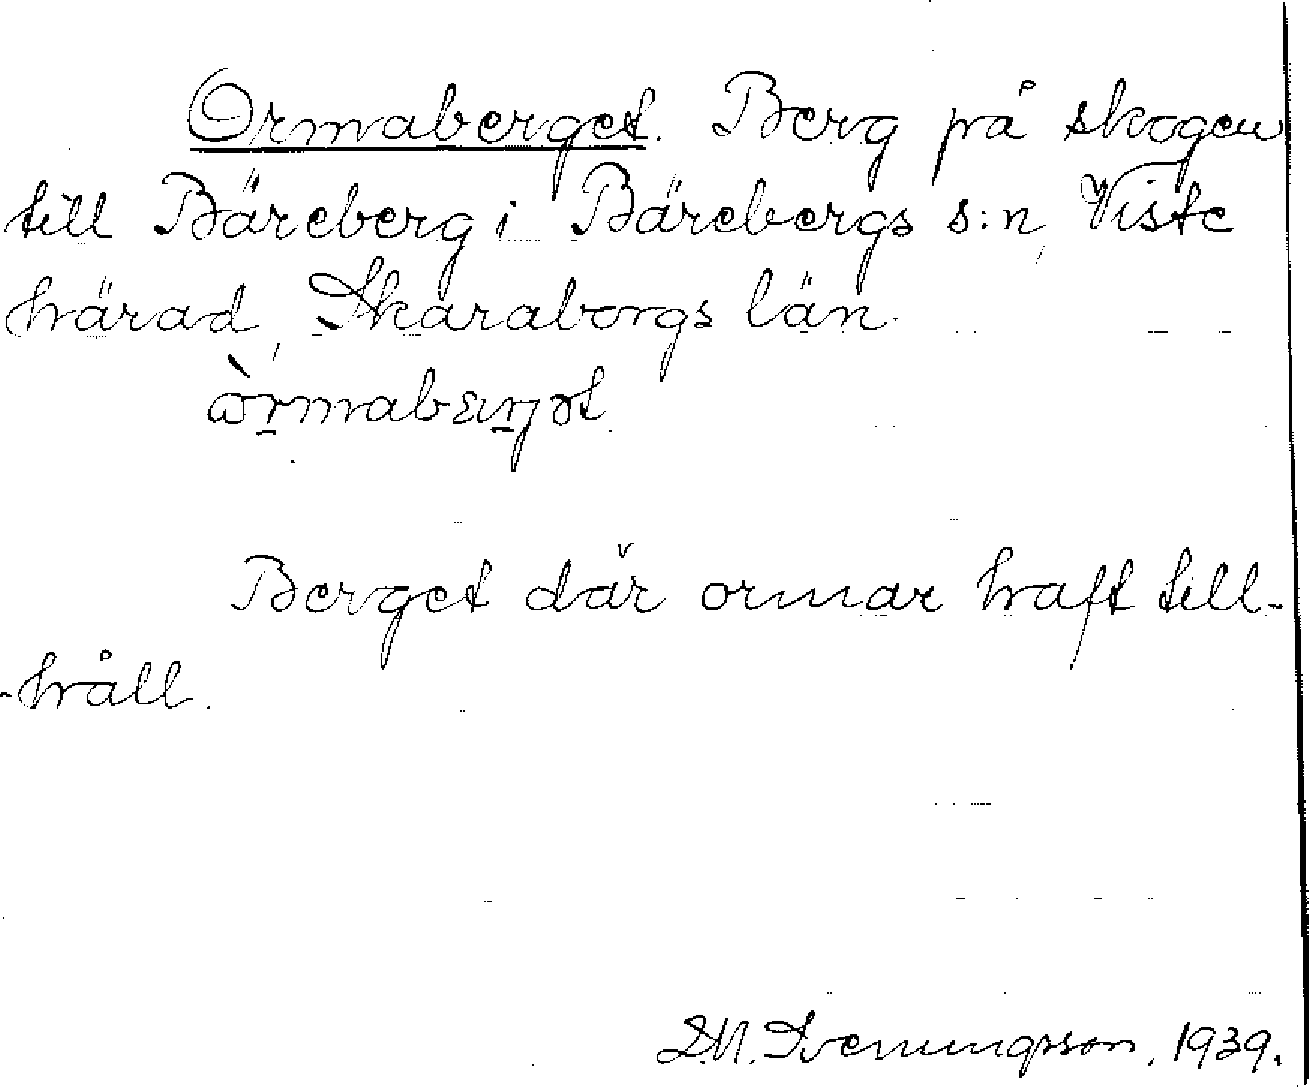 Ormaberget. Berg på skogen
till Bäreberg i Bärebergs s:n, Viste
härad, Skaraborgs län.
Berget där ormar haft till-
-håll.
Svenungsson, 1939.